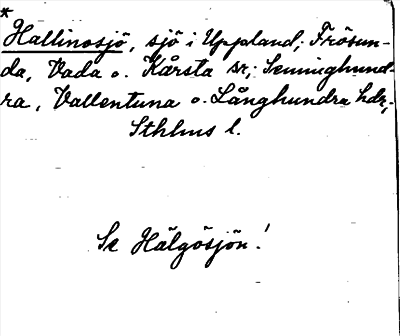 *
Hallinosjö, sjö i Uppland; Frösun-
da, Vada o. Kårsta sr; Seminghund-
ra, Vallentuna o. Långhundra hdr;
Sthlms l.
Se Hälgösjön!